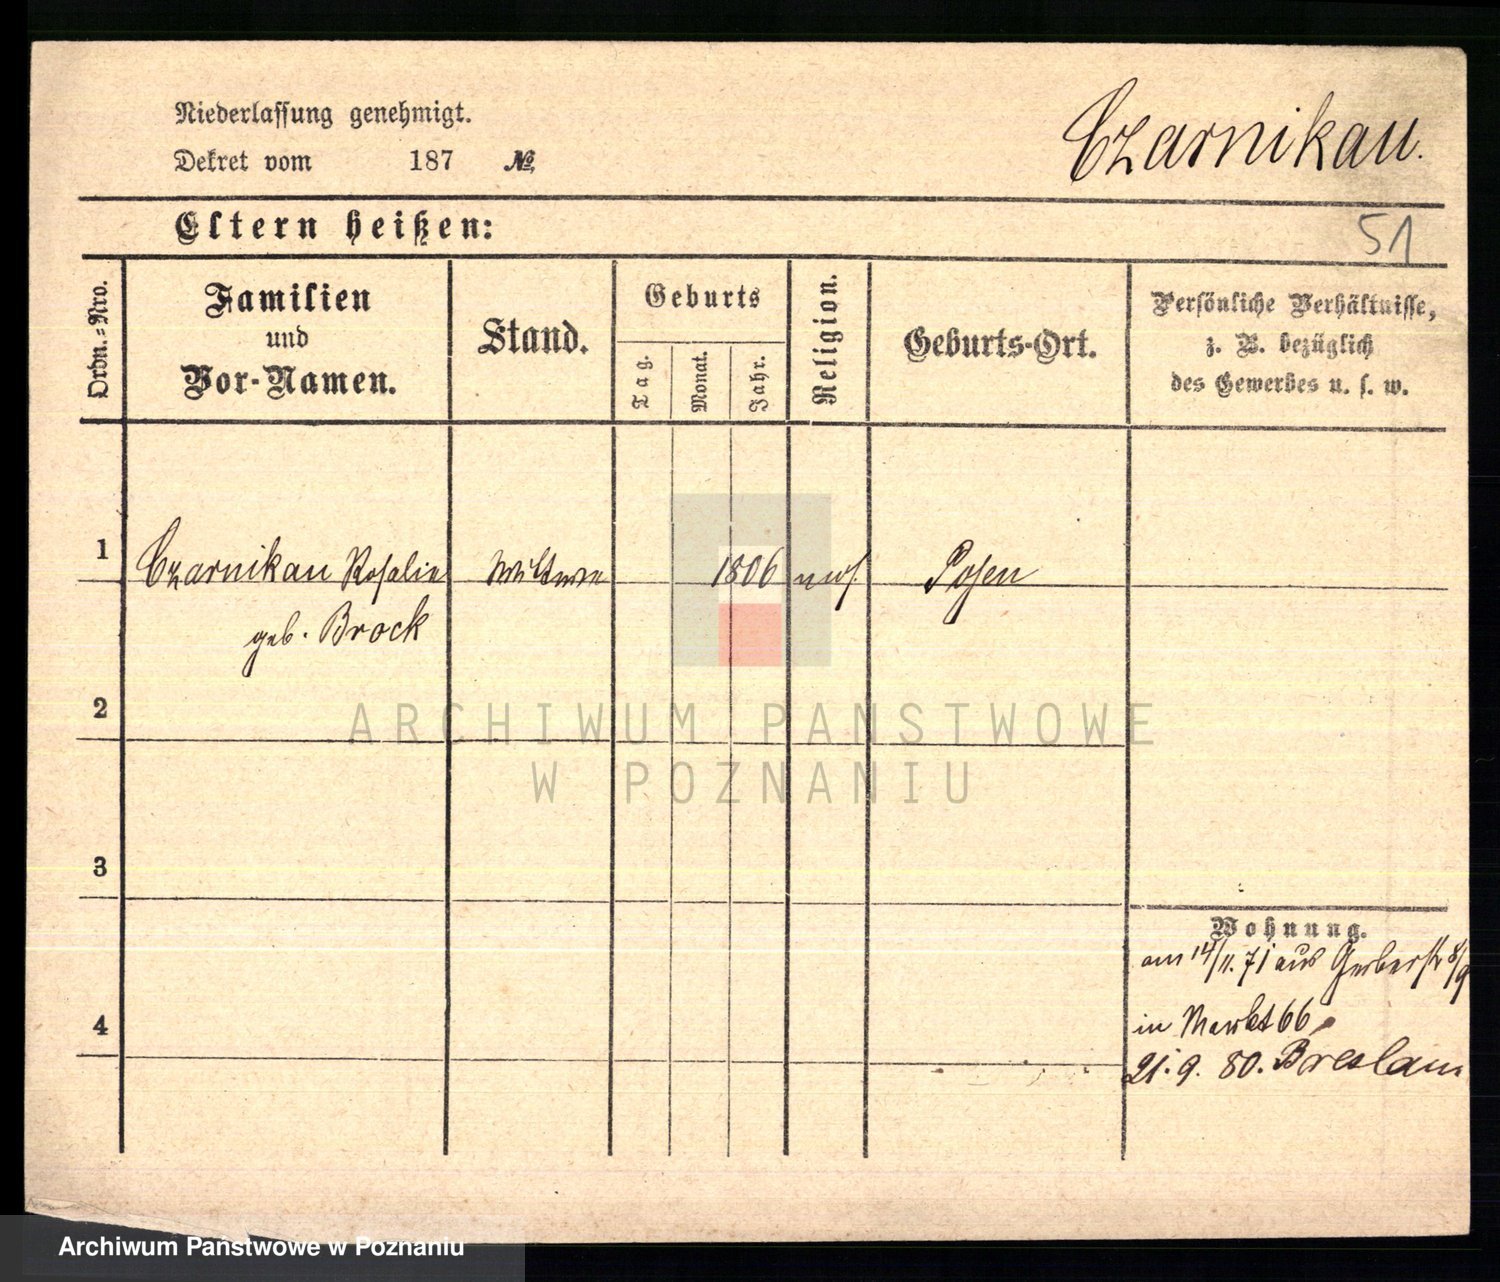 Niederlassung genehmigt.
Dekret vom 187 №
Czarnikau.
Eltern heißen:
51
Ordn.=Nro.
Familien
und
Vor-Namen.
Stand.
Geburts
Tag.
Monat.
Jahr.
Religion.
Geburts-Ort.
Persönliche Verhältnisse,
z. B. bezüglich
des Gewerbes u. s. w.
1 Czarnikau Rosalie Wittwe 1806 mos. Posen
geb. Brock
2
ARCHIWUM PAŃSTWOWE
W POZNANIU
3
Wohnung.
am 14/11. 71 aus Gerberstr 8/9
in Markt 66
4
21. 9. 80. Breslau
Archiwum Państwowe w Poznaniu